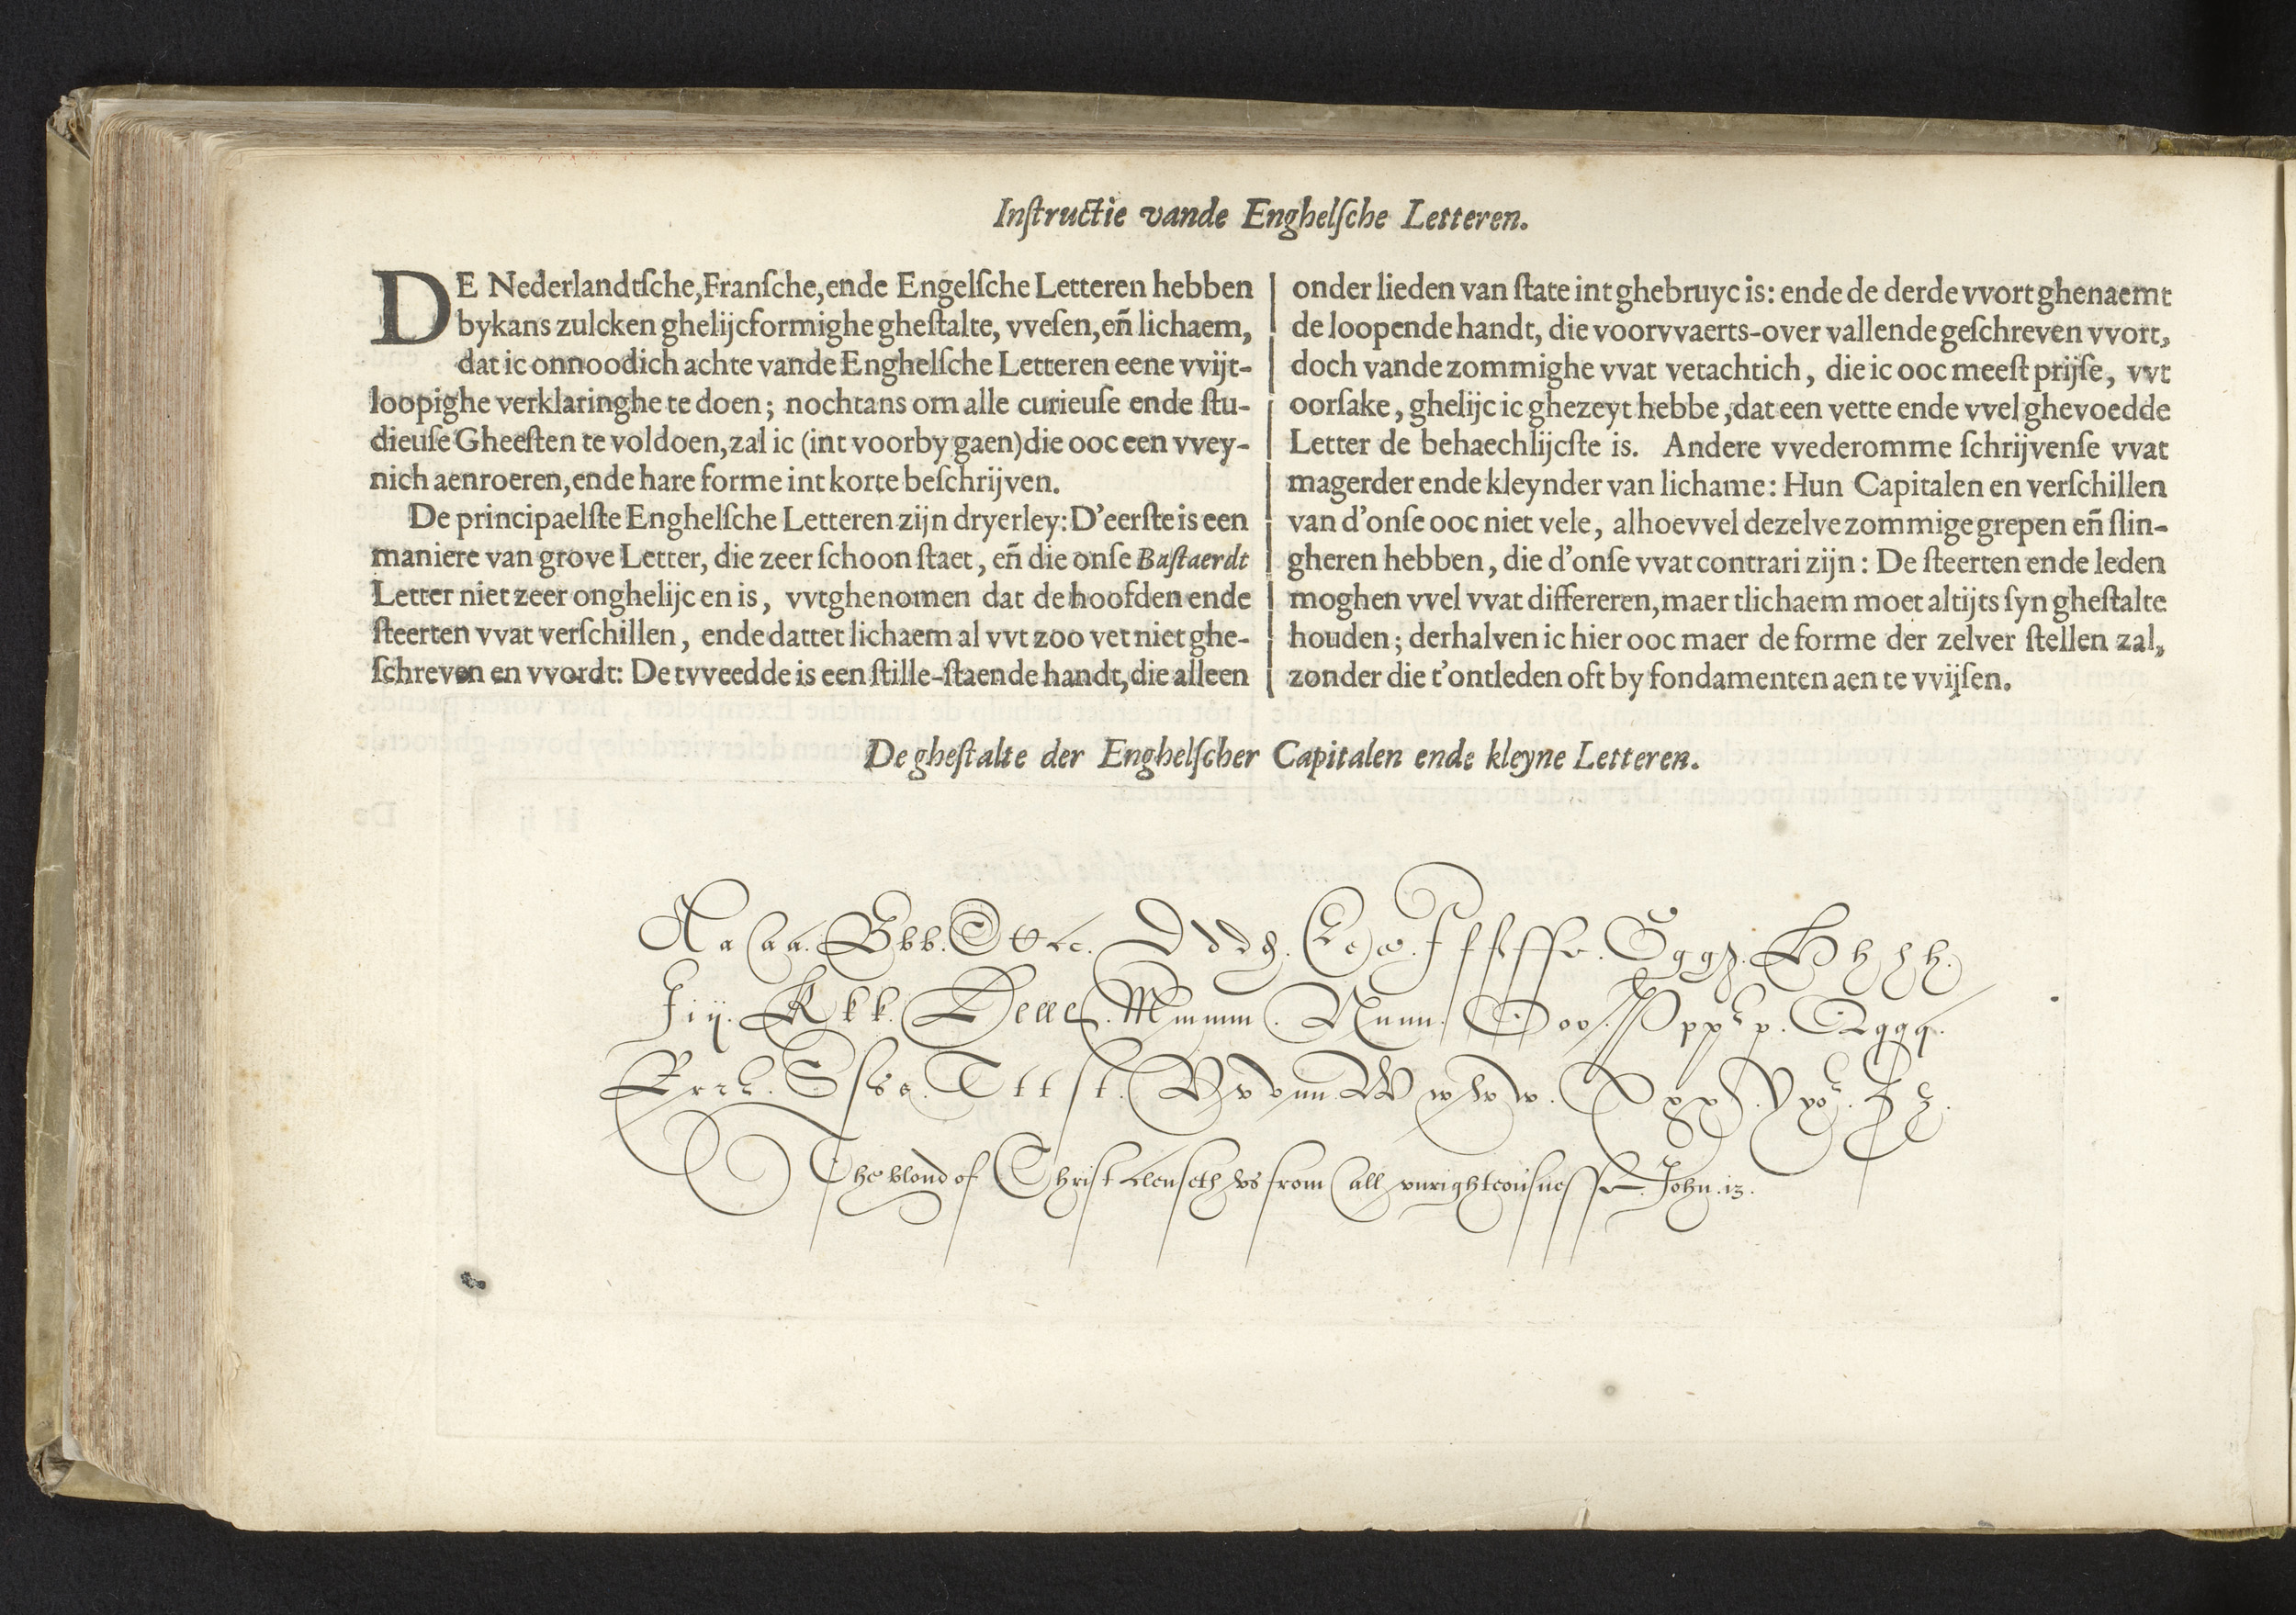 Inſtructie vande Enghelſche Letteren.
DE Nederlandtſche, Franſche, ende Engelſche Letteren hebben
bykans zulcken ghelijcformighe gheſtalte, vveſen, en̄ lichaem,
dat ic onnoodich achte vande Enghelſche Letteren eene vvijt-
loopighe verklaringhe te doen; nochtans om alle curieuſe ende ſtu-
dieuſe Gheeſten te voldoen, zal ic (int voorby gaen) die ooc een vvey-
nich aenroeren, ende hare forme int korte beſchrijven.
De principaelſte Enghelſche Letteren zijn dryerley: D'eerſte is een
maniere van grove Letter, die zeer ſchoon ſtaet, en̄ die onſe Baſtaerdt
Letter niet zeer onghelijc en is, vvtghenomen dat de hoofden ende
ſteerten vvat verſchillen, ende dattet lichaem al vvt zoo vet niet ghe-
ſchreven en vvordt: De tvveedde is een ſtille-ſtaende handt, die alleen
onder lieden van ſtate int ghebruyc is: ende de derde vvort ghenaemt
de loopende handt, die voorvvaerts-over vallende geſchreven vvort,
doch vande zommighe vvat vetachtich, die ic ooc meeſt prijſe, vvt
oorſake, ghelijc ic ghezeyt hebbe, dat een vette ende vvel ghevoedde
Letter de behaechlijcſte is. Andere vvederomme ſchrijvenſe vvat
magerder ende kleynder van lichame: Hun Capitalen en verſchillen
van d'onſe ooc niet vele, alhoevvel dezelve zommige grepen en̄ ſlin-
gheren hebben, die d'onſe vvat contrari zijn: De ſteerten ende leden
moghen vvel vvat differeren, maer tlichaem moet altijts ſyn gheſtalte
houden; derhalven ic hier ooc maer de forme der zelver ſtellen zal,
zonder die t'ontleden oft by fondamenten aen te vvijſen.
De gheſtalte der Enghelſcher Capitalen ende kleyne Letteren.
A a a a. B b b. C c c. D d d d. E e e. F f f ſſ e. G g g g. H h h h.
J i ij. K k k. L l l l l. M m m m. N n n n. O o o. P p p p. Q q q q.
R r r r. S ſ s s. T t t ſt. V v v u u. W w w w. X x x. Y y o. Z z.
The bloud of Chriſt clenſeth vs from all vnrighteouſneſſe. John. 13.